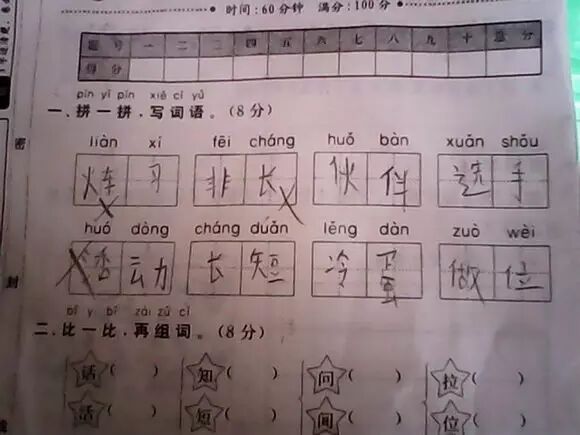 时间:60分钟 满分:100分
题号 一 二 三 四 五 六 七 八 九 十 总分
得分
pīn yī pīn xiě cí yǔ
一、拼一拼,写词语。(8分)
liàn xí fēi cháng huǒ bàn xuǎn shǒu
炼 习 非 长 伙 伴 选 手
huó dòng cháng duǎn lěng dàn zuò wèi
动 长 短 冷 蛋 做 位
bǐ yi bǐ zài zǔ cí
二、比一比,再组词。(8分)
话( ) 知( ) 问( ) 拉( )
活( ) 短( ) 间( ) 位( )
密
封